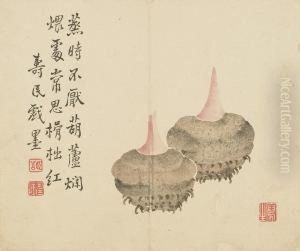 蒸時不厭葫蘆爛
煨處常思榾柮紅
壽民戲墨
NiceArtGallery.com